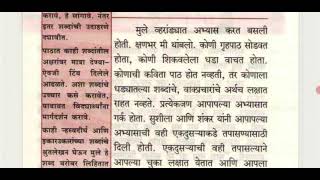 करावे, हे सांगावे. नंतर
इतर शब्दांची उदाहरणे
द्यावीत.
पाठात काही शब्दांतील
अक्षरांवर मात्रा देण्या-
ऐवजी टिंब दिलेले
आढळते. अशा शब्दांचे
उच्चार कसे करावेत,
याबाबत विद्यार्थ्यांना
मार्गदर्शन करावे.
काही न्हस्वदीर्घ आणि
इकारउकारांच्या शब्दांचे
श्रुतलेखन घेऊन मुले हे
शब्द बरोबर लिहितात
मुले व्हरांड्यात अभ्यास करत बसली
होती. क्षणभर मी थांबलो. कोणी गृहपाठ सोडवत
होता, कोणी शिकवलेला धडा वाचत होता.
कोणाची कविता पाठ होत नव्हती, तर कोणाला
धड्यातल्या शब्दांचे, वाक्प्रचारांचे अर्थच लक्षात
राहत नव्हते. प्रत्येकजण आपापल्या अभ्यासात
गर्क होता. सुशीला आणि शंकर यांनी आपापल्या
अभ्यासाची वही एकदुसऱ्याकडे तपासण्यासाठी
दिली होती. एकदुसऱ्याची वही तपासल्याने
आपापल्या चुका लक्षात येतात आणि आपला